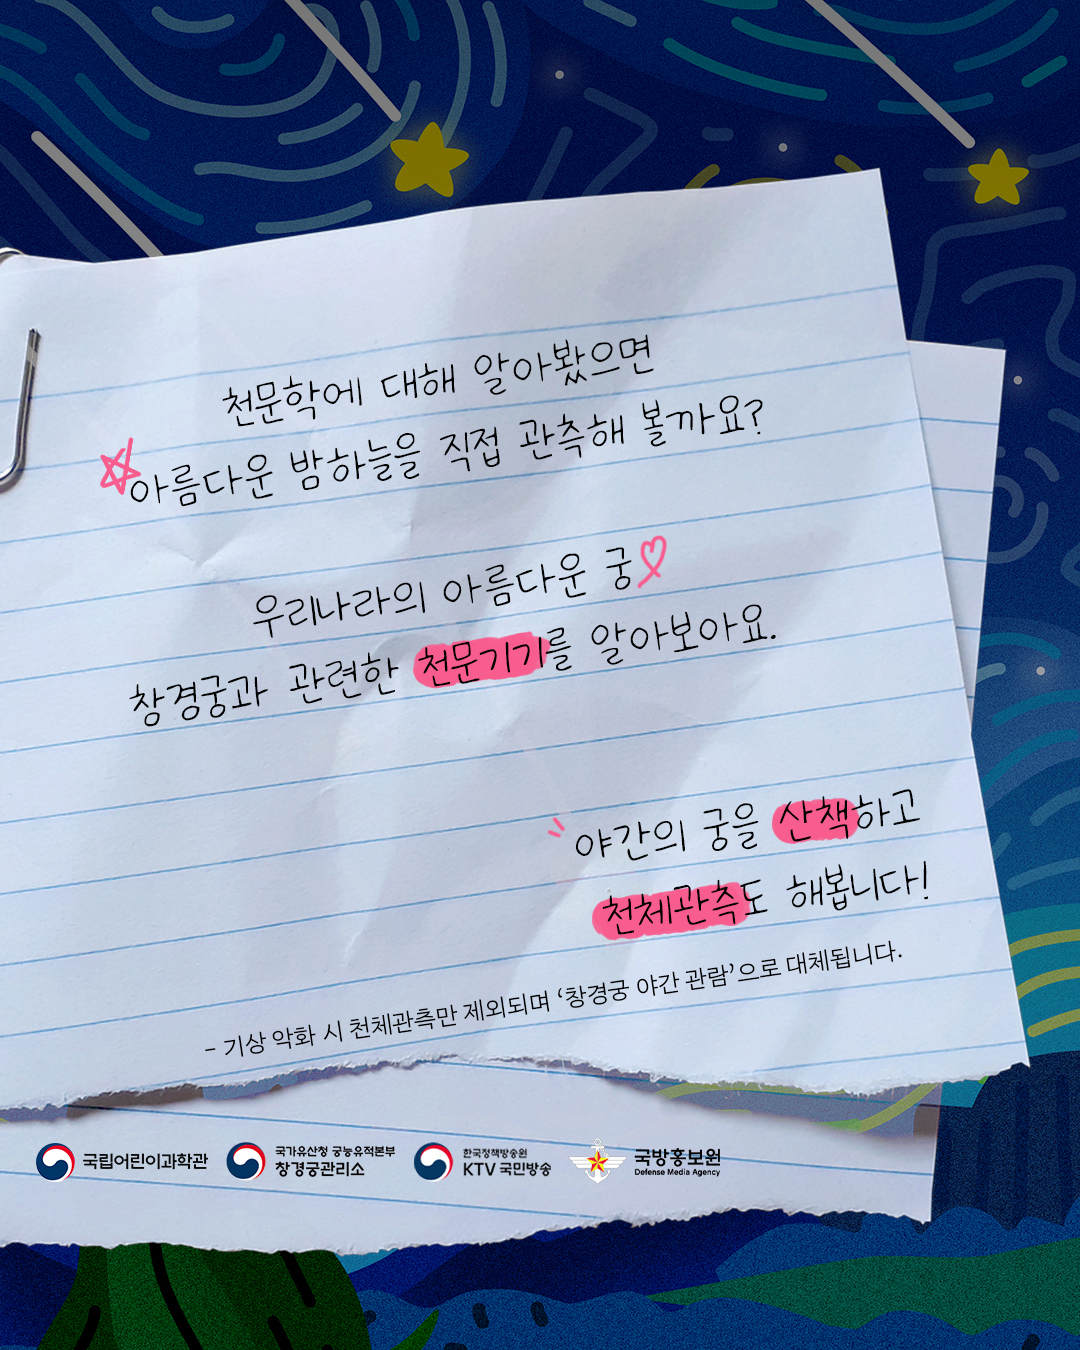 천문학에 대해 알아봤으면
아름다운 밤하늘을 직접 관측해 볼까요?
우리나라의 아름다운 궁
창경궁과 관련한 천문기기를 알아보아요.
야간의 궁을 산책하고
천체관측도 해봅니다!
- 기상 악화 시 천체관측만 제외되며 ‘창경궁 야간 관람’으로 대체됩니다.
국립어린이과학관
국가유산청 궁능유적본부
창경궁관리소
한국정책방송원
KTV 국민방송
국방홍보원
Defense Media Agency